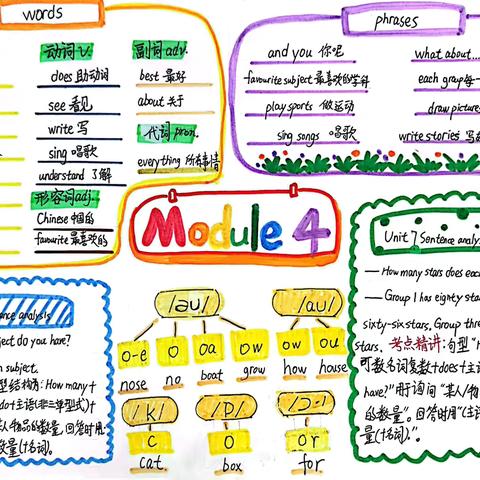 words
动词 v.
does 助动词
see 看见
write 写
sing 唱歌
understand 了解
形容词adj.
Chinese 中国的
favourite 最喜欢的
副词adv.
best 最好
about 关于
代词 pron.
everything 所有事情
phrases
and you 你呢
favourite subject 最喜欢的学科
play sports 做运动
sing songs 唱歌
what about...
each group 每一
draw pictures
write stories 写
Module 4
ance analysis
ject do you have?
n subject.
型结构: How many +
do+主语(非三单型式)+
某人物品的数量, 回答时用
数量(+名词)
/əu/
/au/
o-e o oa ow ow ou
nose no boat grow how house
/k/ /ɒ/ /ɔː/
c o or
cat box for
Unit 7 Sentence analys
— How many stars does each
— Group 1 has eighty stars
sixty-six stars, Group three
stars. 考点精讲: 句型 "H
可数名词复数+does+主语
have?" 用于询问 "某人/物
的数量". 回答时用 "(主语
量(+名词)."